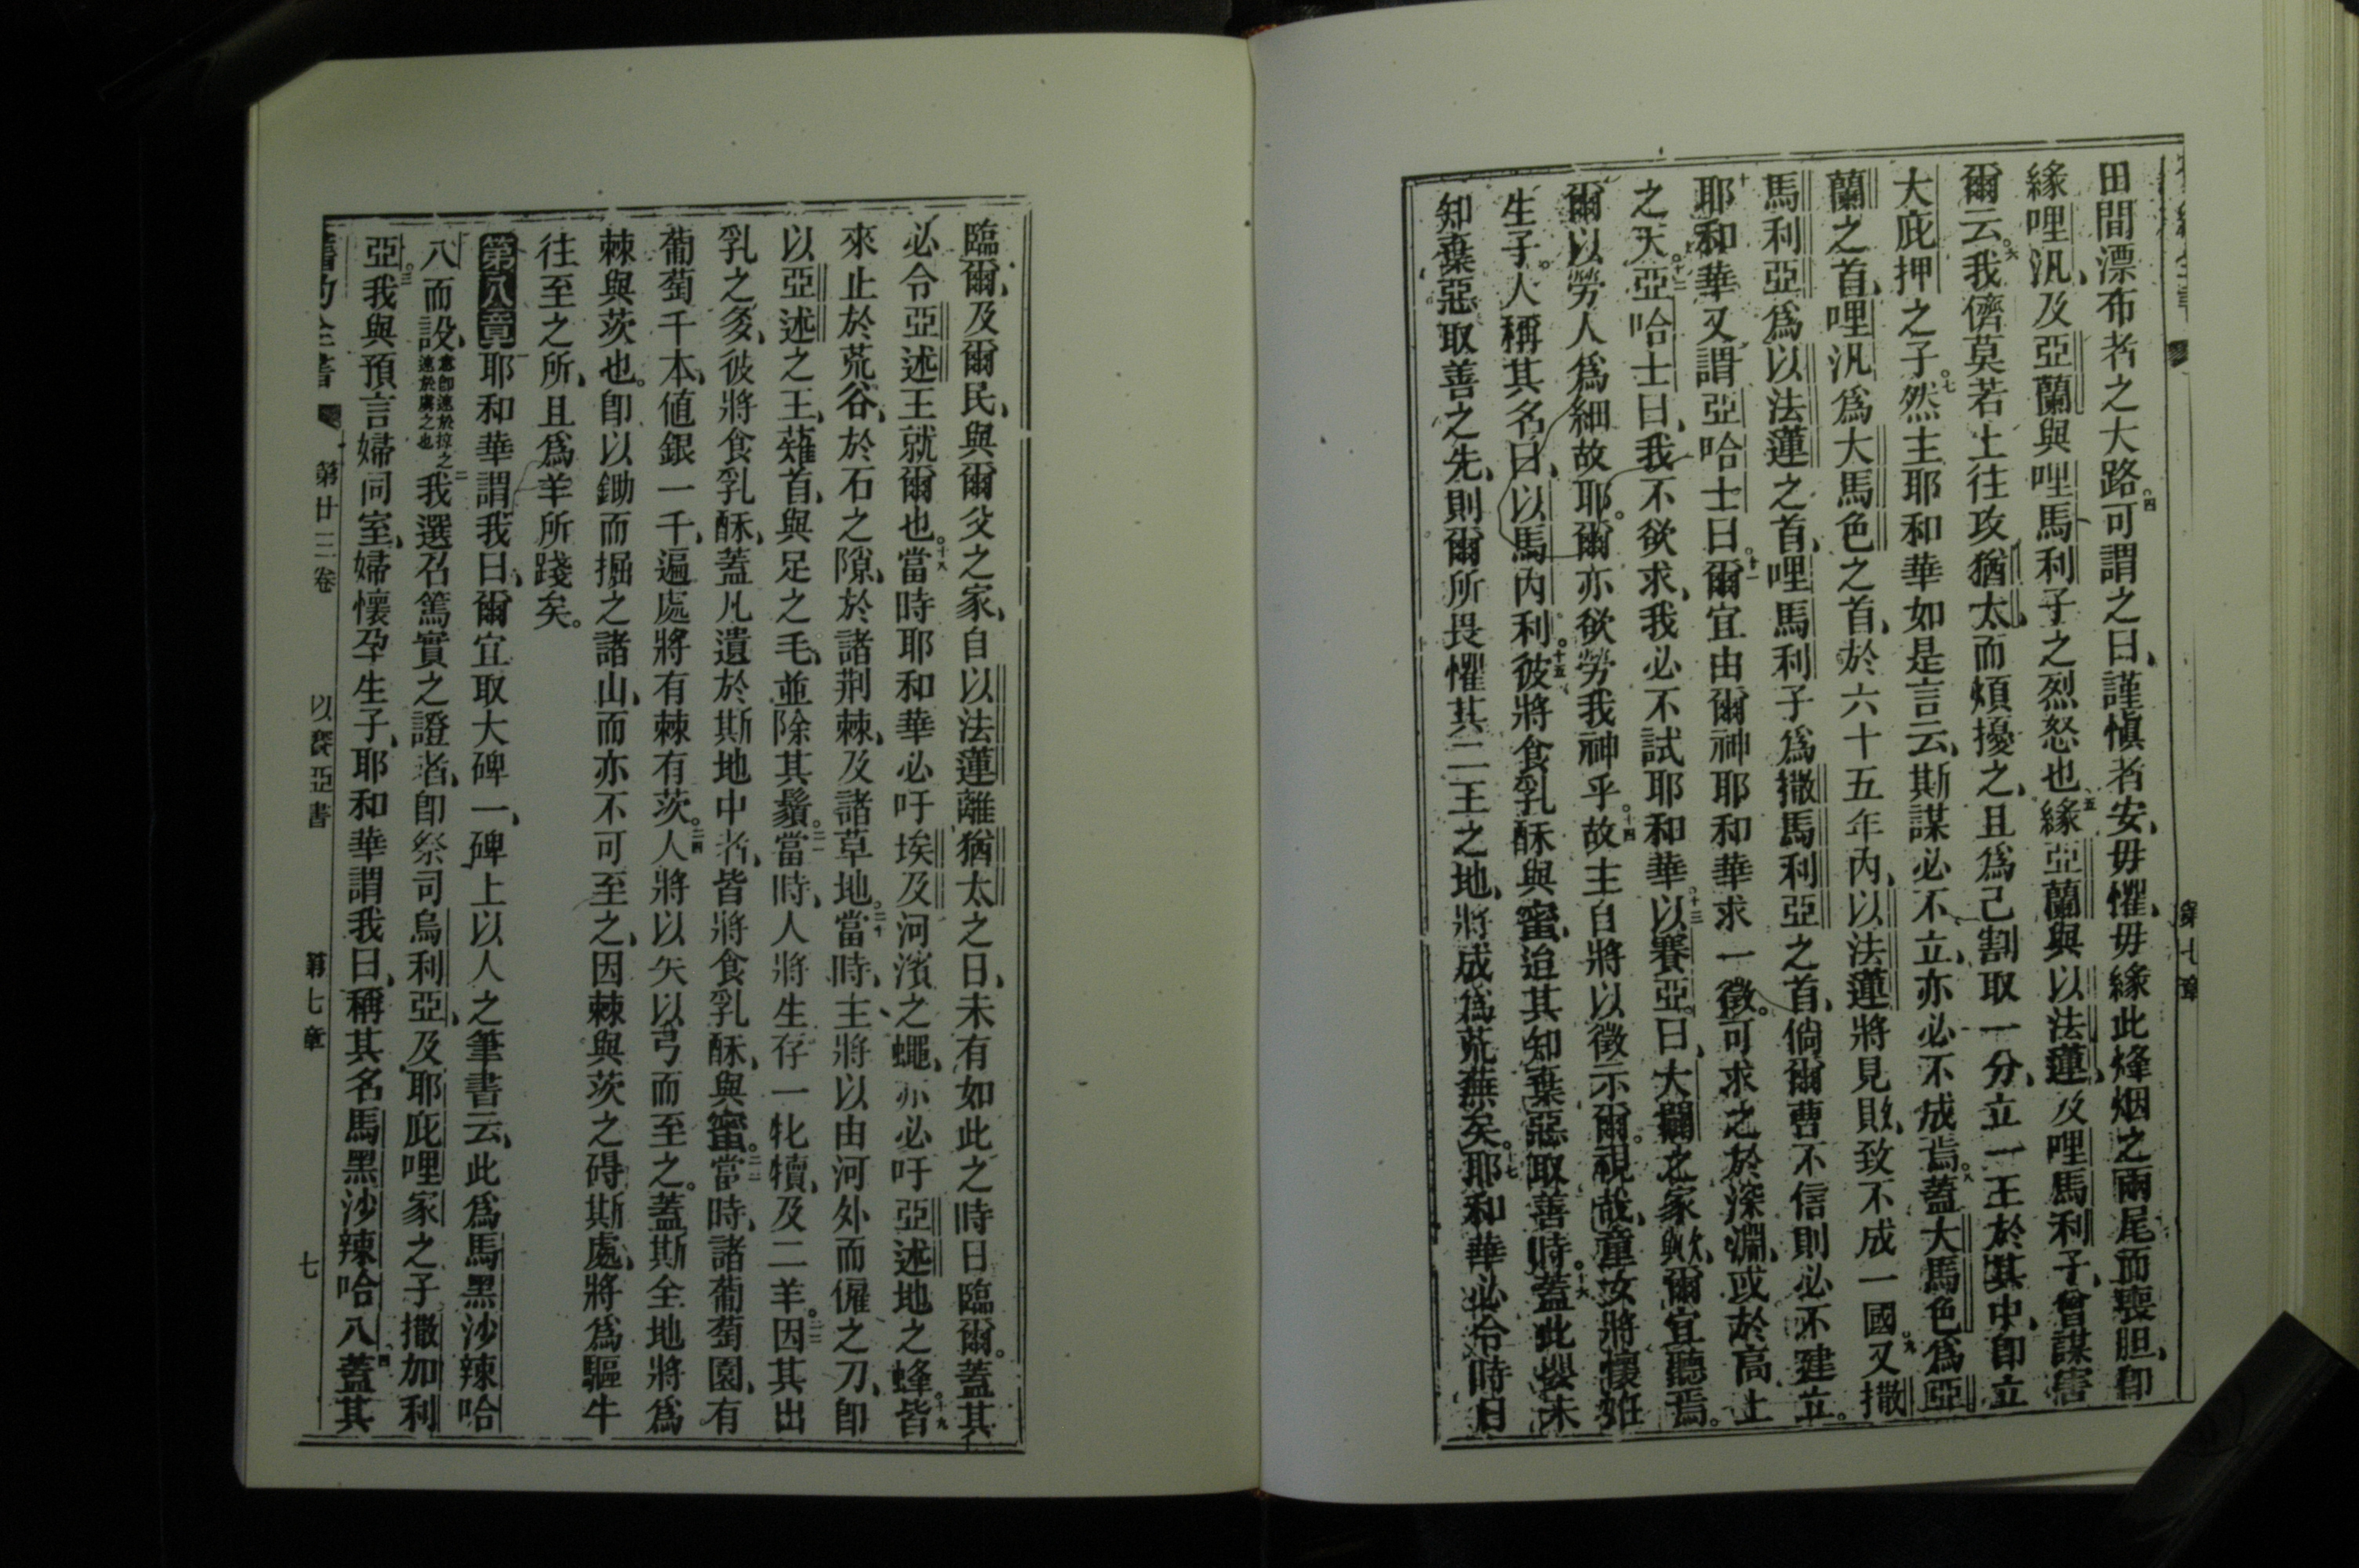 田間漂布者之大路。四可謂之曰、謹慎者安、毋懼、毋緣此烽烟之兩尾而喪胆、卽
緣哩汎、及亞蘭與哩馬利子之烈怒也。五緣亞蘭與以法蓮、及哩馬利子、曾謀害
爾云。六我儕莫若上往攻猶太、而煩擾之、且爲己割取一分、立一王於其中、卽立
大庇押之子。七然主耶和華如是言云、斯謀必不立、亦必不成焉。八蓋大馬色爲亞
蘭之首、哩汎爲大馬色之首、於六十五年內、以法蓮將見敗、致不成一國。九又撒
馬利亞爲以法蓮之首、哩馬利子爲撒馬利亞之首、倘爾曹不信則必不建立。
十耶和華又謂亞哈士曰。十一爾宜由爾神耶和華求一徵。可求之於深淵、或於高上
之天。十二亞哈士曰、我不欲求、我必不試耶和華。十三以賽亞曰、大闢之家歟、爾宜聽焉。
爾以勞人爲細故耶。爾亦欲勞我神乎。十四故主自將以徵示爾。視哉、童女將懷姙
生子。人稱其名曰、以馬內利。十五彼將食乳酥與蜜、迨其知棄惡取善時。十六蓋此嬰未
知棄惡取善之先、則爾所畏懼其二王之地、將成爲荒蕪矣。十七耶和華必令時日
第七章
臨爾、及爾民、與爾父之家、自以法蓮離猶太之日、未有如此之時日臨爾。蓋其
必令亞述王就爾也。十八當時耶和華必吁埃及河濱之蠅、亦必吁亞述地之蜂。十九皆
來止於荒谷、於石之隙、於諸荆棘、及諸草地。二十當時、主將以由河外而僱之刀、卽
以亞述之王、薙首、與足之毛、並除其鬚。二一當時、人將生存一牝犢、及二羊。二二因其出
乳之多、彼將食乳酥、蓋凡遺於斯地中者、皆將食乳酥、與蜜。二三當時、諸葡萄園、有
葡萄千本、値銀一千、遍處將有棘有茨。二四人將以矢以弓而至之。蓋斯全地將爲
棘與茨也。卽以鋤而掘之諸山、而亦不可至之、因棘與茨之碍斯處、將爲驅牛
往至之所、且爲羊所踐矣。
第八章耶和華謂我曰、爾宜取大碑一、碑上以人之筆書云、此爲馬黑沙辣哈
八而設、意卽速於掠之速於虜之也二我選召篤實之證者、卽祭司烏利亞、及耶庇哩家之子撒加利
亞。三我與預言婦同室、婦懷孕生子、耶和華謂我曰、稱其名馬黑沙辣哈八、四蓋其
舊約全書 第廿三卷 以賽亞書 第七章 七